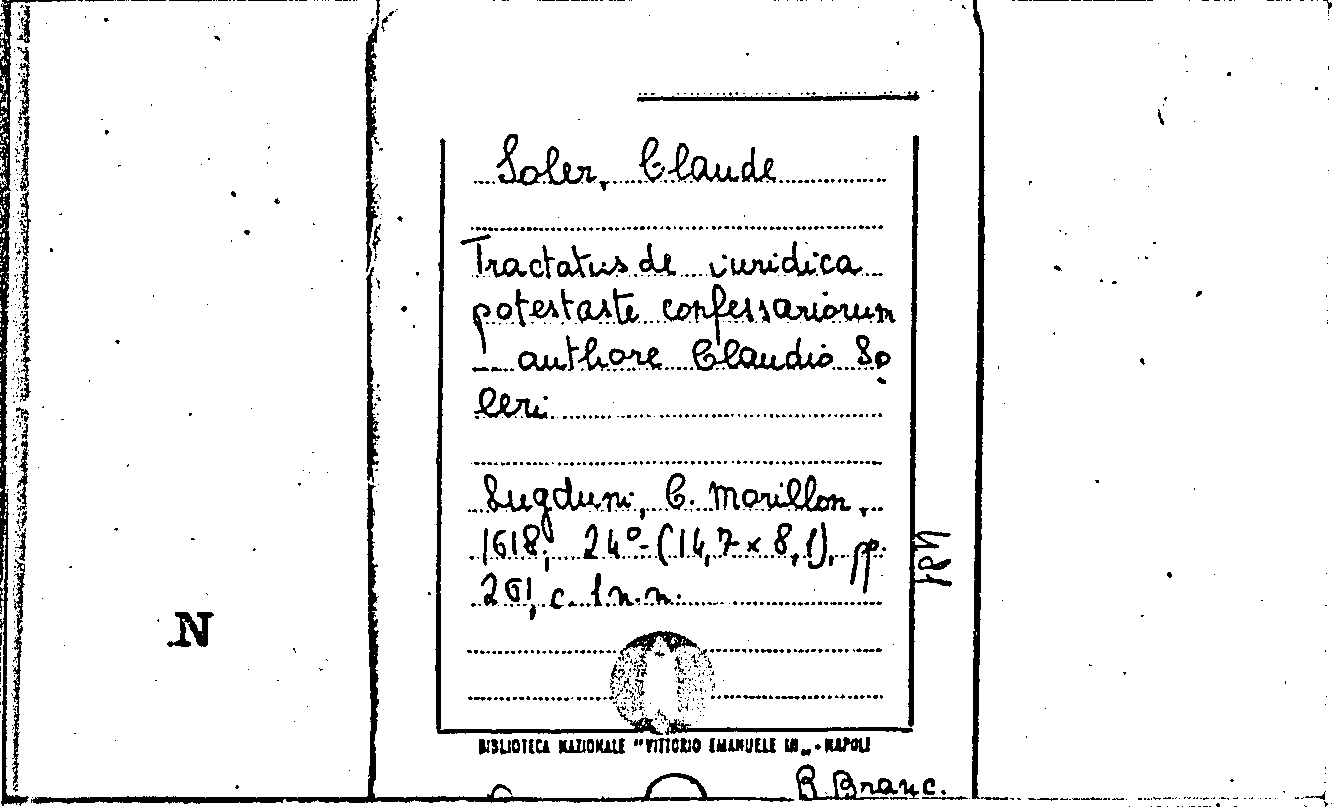 Soler, Claude
Tractatus de iuridica
potestaste confessariorum
authore Claudio So
leri
Lugduni, C. Morillon,
1618, 24° (14,7 x 8,1), pp.
261, c. 1 n.n.
N
BIBLIOTECA NAZIONALE "VITTORIO EMANUELE III„ - NAPOLI
B. Branc.